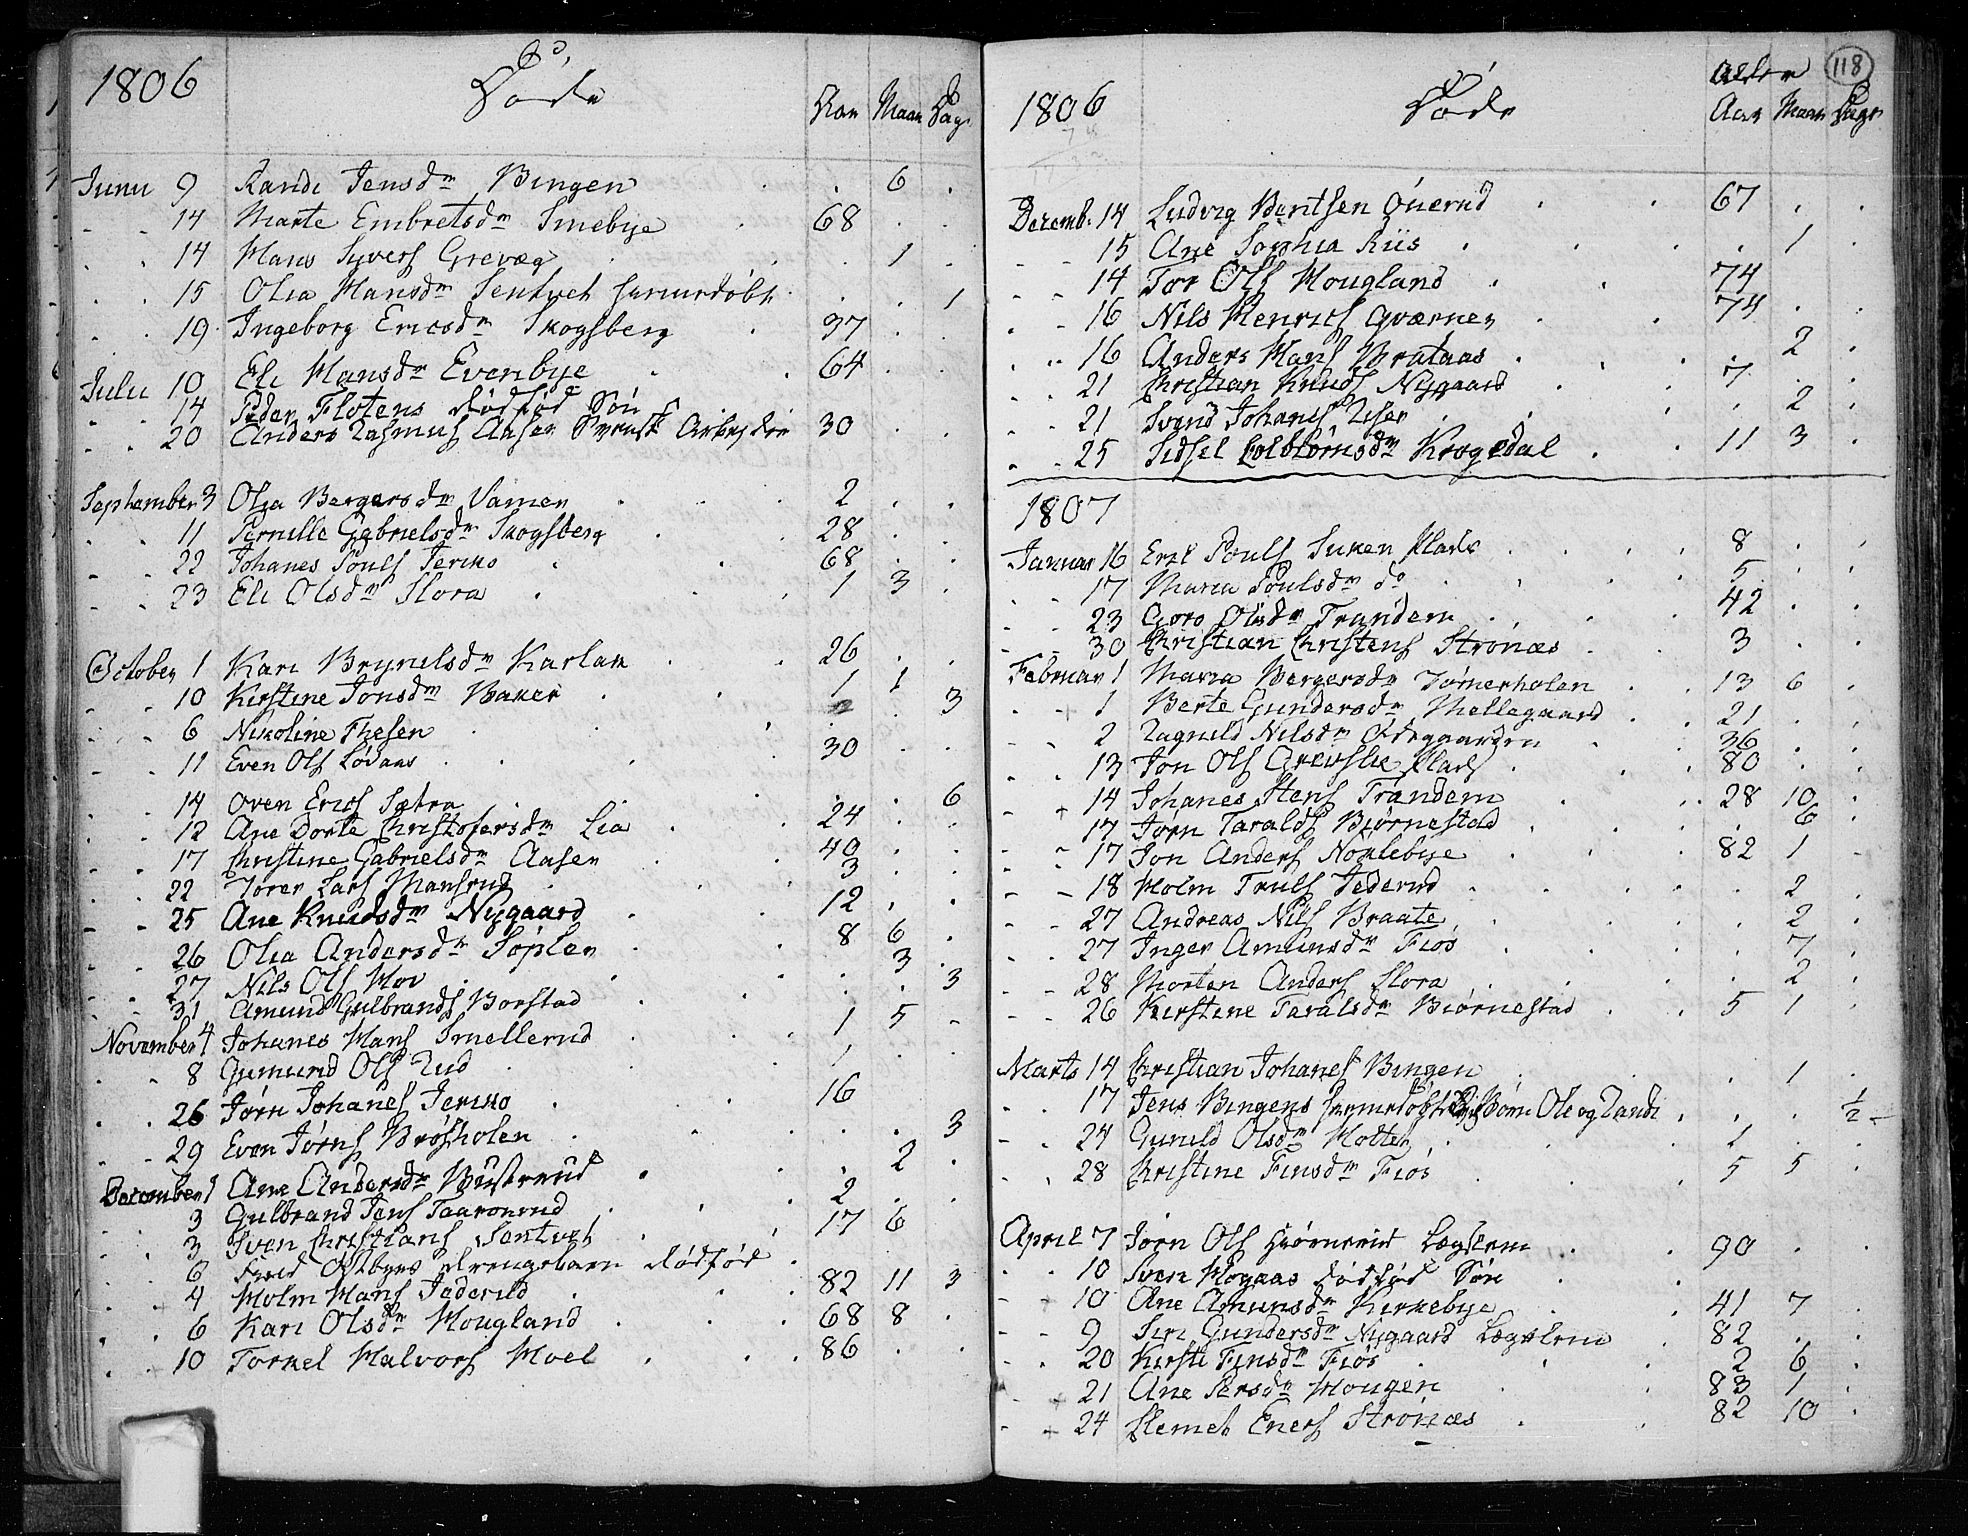 1806 Døde Aar Maan Dage
Junii 9 Randi Jensdr Bingen . 6 .
14 Marte Embretsdr Smebye 68 . .
14 Hans Syvers Grevæg . 1 .
15 Olia Hansdr Sentvet hiemmdøbt . . 1
19 Ingeborg Ericsdr Skogsberg 37 . .
Julii 10 Eli Hansdr Evenbye 64 . .
14 Peder Flotens dødfød Søn
20 Anders Rasmus Aasen Svensk 30 . .
September 3 Olia Bergersdr Vamen 2 . .
11 Pernille Gabrielsdr Skogsberg 28 . .
22 Johanes Pouls Jeriko 68 . .
23 Eli Olsdr Slora 1 3 .
October 1 Kari Brynilsdr Karlak 26 . .
10 Kirstine Jonsdr Baker 1 1
6 Nikoline Thesen . 3
11 Even Ols Lødaas 30 . .
14 Oven Erics Sætra . . 6
12 Ane Dorte Christofersdr Lia 24 . .
17 Christine Gabrielsdr Aasen 49 . .
22 Jører Lars Mansrud 3 . .
25 Ane Knudsdr Nygaard 12 . .
26 Olia Andersdr Søplen 8 6 .
27 Nils Ols Moe . 3 .
31 Amund Gulbrands Borstad . . 3
November 4 Johanes Hans Smellerud 1 5 -
8 Gumund Ols Rud 1 . .
26 Jørn Johanes Jeriko 16
29 Even Jørns Brøsholen . . 3
December 1 Ane Andersdr Bustrud . 2 .
3 Gulbrand Jens Taarnerud 2 . .
3 Sven Christians Sentvet 17 6
6 Østbyes drengebarn dødfød .
4 Holm Hans Jæderud 82 11 3
6 Kari Olsdr Hougland 68 8 .
10 Torkel Halvors Moel 86 . .
118
1806 Døde Alder Aar Maan Dage
Decemb. 14 Ludvig Bentsen Querud 67 . .
15 Ane Sophia Riis . 1 .
14 Tor Ols Hougland 74
16 Nils Henrics Qværner 74 . .
16 Anders Hans Brataas . 2 .
21 Christian Knuds Nygaard 7 . .
21 Svend Johanes Riser . 2 .
25 Sidsel Colbiørnsdr Krogsdal 11 3 .
1807
Januar 16 Eric Pouls Suken Plads 8 . .
17 Maria Poulsdr do 5 . .
23 Goro Olsdr Trandem 42 . .
30 Christian Christens Strønæs 3 .
Februar 1 Maria Bergersdr Tømerholen 13 6 .
1 Berte Gundersdr Hellegaard 21 . .
2 Ragnild Nilsdr Ødegaarden 36 . .
13 Jon Ols Grevsli Plads 80 . .
14 Johanes Stens Trandem 28 10 .
17 Jørn Taralds Biørnestad . 6 .
17 Jon Anders Noklebye 82 1 -
18 Holm Truls Jederud . 2 .
27 Andreas Nils Braate . 2 .
27 Inger Amunsdr Fiøs . 7 .
28 Morten Anders Slora . 2 .
26 Kirstine Taralsdr Biørnestad 5 1 .
Marts 14 Christian Johanes Bingen . 1 .
17 Jens Bingens hiemmdøbte Børn Ole og Randi . . ½
24 Gunild Olsdr Holter 1 . .
28 Christine Finsdr Fiøs 5 5 .
April 7 Jørn Ols Lægslem 90 . .
10 Sven Mogaas dødfød Søn
10 Ane Amunsdr Kirkebye 41 7 .
9 Siri Gundersdr Nygaard Lægslem 82 . .
20 Kirsti Finsdr Fiøs 2 6 .
21 Ane Persdr Hougen 83 1 .
24 Clemet Eners Strønæs 82 10 .